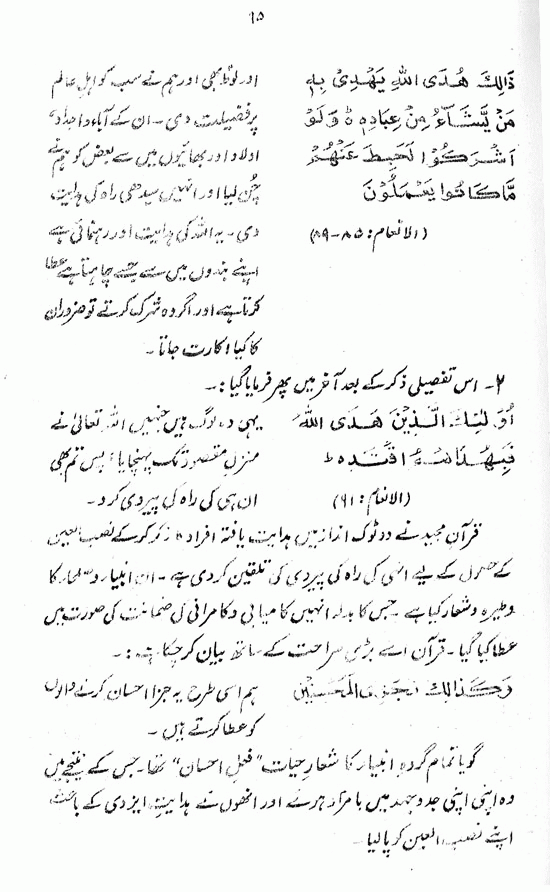 ۹۵
ذَالِكَ هُدَى اللهِ يَهْدِىْ بِهٖ
مَنْ يَّشَآءُ مِنْ عِبَادِهٖ ؕ وَلَوْ
اَشْرَكُوْا لَحَبِطَ عَنْهُمْ
مَّا كَانُوْا يَعْمَلُوْنَ
(الانعام: ۸۵-۸۹)
اور لوطؑ بھی اور ہم نے سب کو اہل عالم
پر فضیلت دی۔ ان کے آباء و اجداد
اولاد اور بھائیوں میں سے بعض کو ہم نے
چُن لیا اور انہیں سیدھی راہ کی ہدایت
دی۔ یہ اللہ کی ہدایت اور رہنمائی ہے
اپنے بندوں میں سے جسے چاہتا ہے عطا
کرتا ہے اور اگر وہ شرک کرتے تو ضرور ان
کا کیا اکارت جاتا۔
۲۔ اس تفصیلی ذکر کے بعد آخر میں پھر فرمایا گیا:۔
اُولٰئِكَ الَّذِيْنَ هَدَى اللهُ
فَبِهُدَاهُمُ اقْتَدِهْ ؕ
(الانعام: ۹۱)
یہی وہ لوگ ہیں جنہیں اللہ تعالیٰ نے
منزل مقصود تک پہنچایا: پس تم بھی
ان ہی کی راہ کی پیروی کرو۔
قرآن مجید نے دو ٹوک انداز میں ہدایت یافتہ افراد کا ذکر کر کے نصب العین
کے حصول کے لیے انہی کی راہ کی پیروی کی تلقین کر دی ہے۔ ان انبیاء و صلحاء کا
وطیرہ و شعار کیا ہے۔ جس کا بدلہ انہیں کامیابی و کامرانی کی ضمانت کی صورت میں
عطا کیا گیا۔ قرآن اسے بڑی سراحت کے ساتھ بیان کر چکا ہے:۔
وَكَذَالِكَ نَجْزِى الْمُحْسِنِيْنَ
ہم اسی طرح یہ جزا احسان کرنے والوں
کو عطا کرتے ہیں۔
گویا تمام گروہِ انبیاء کا شعارِ حیات "فعلِ احسان" تھا۔ جس کے نتیجے میں
وہ اپنی اپنی جدوجہد میں بامراد ہوئے اور انھوں نے ہدایتِ ایزدی کے باعث
اپنے نصب العین کو پا لیا۔